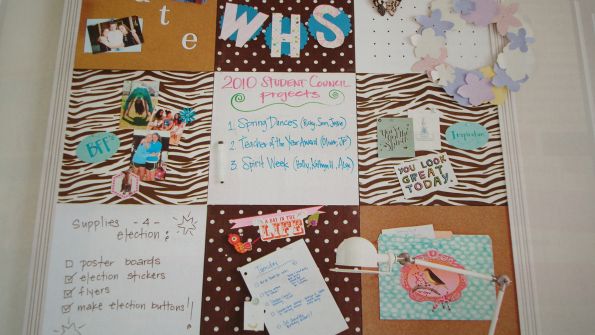 ate
WHS
2010 STUDENT COUNCIL
projects
1. Spring Dances (Ruby, Sam, Jessie)
2. Teacher of the Year Award (Oliver, JP)
3. Spirit Week (Holly, Kathryn H, Alex)
BFF
Inspiration
YOU LOOK
GREAT
TODAY.
Supplies -4-
election:
poster boards
election stickers
flyers
make election buttons!
A DAY IN THE
LIFE
Tuesday